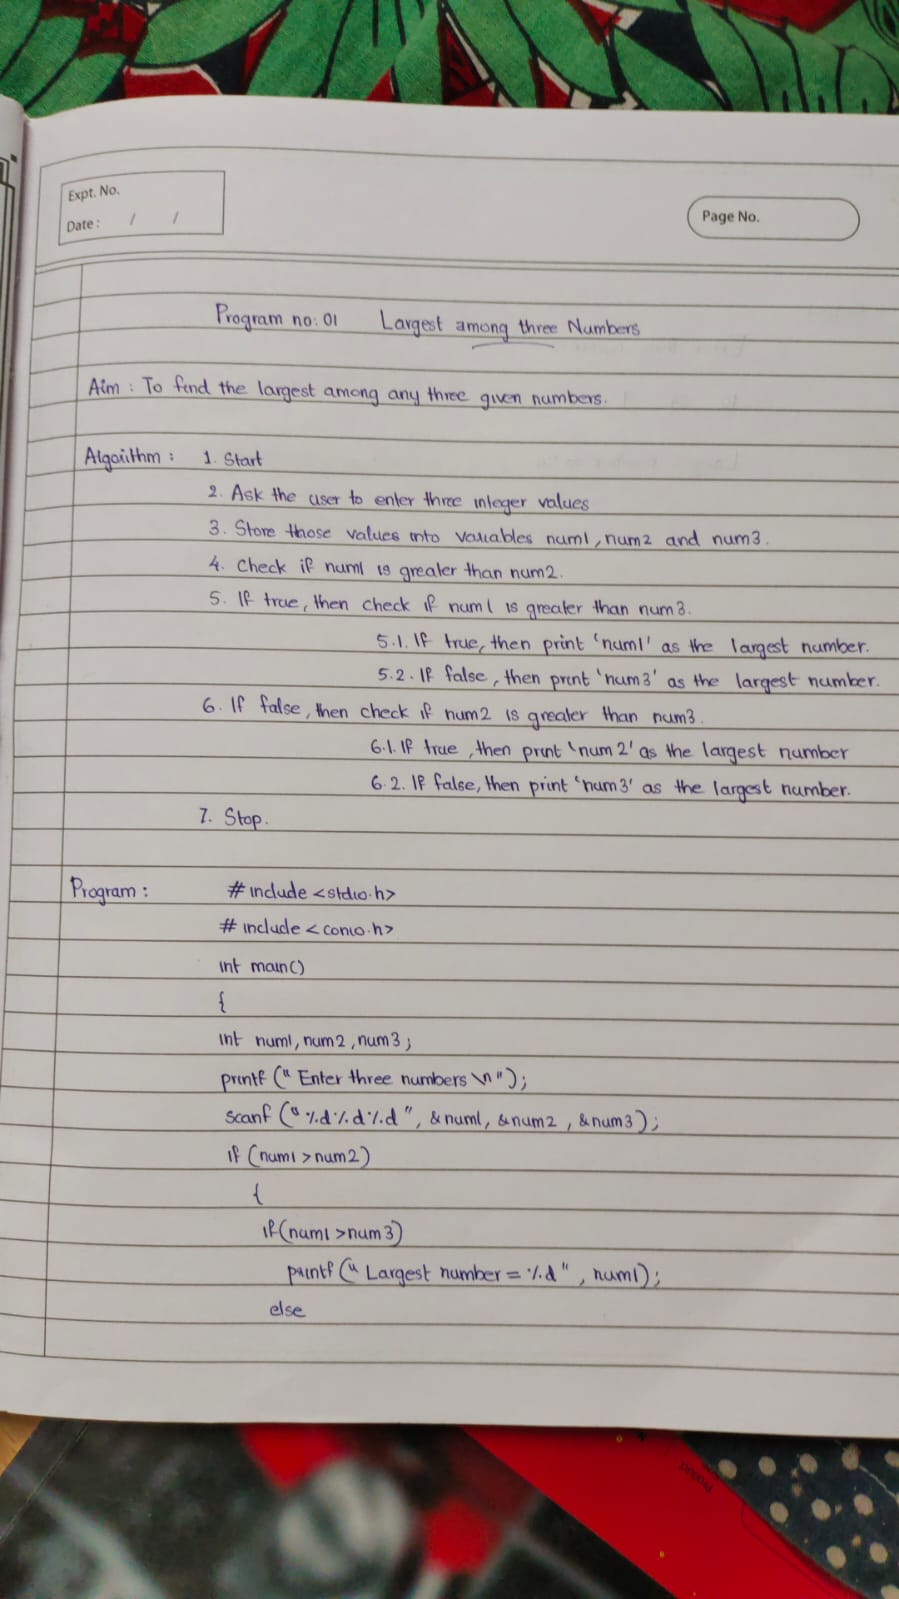 Expt. No.
Date : / /
Page No.
Program no: 01 Largest among three Numbers
Aim : To find the largest among any three given numbers.
Algorithm : 1. Start
2. Ask the user to enter three integer values
3. Store those values into variables num1, num2 and num3.
4. Check if num1 is greater than num2.
5. If true, then check if num1 is greater than num3.
5.1. If true, then print 'num1' as the largest number.
5.2. If false, then print 'num3' as the largest number.
6. If false, then check if num2 is greater than num3.
6.1. If true, then print 'num2' as the largest number
6.2. If false, then print 'num3' as the largest number.
7. Stop.
Program : # include <stdio.h>
# include <conio.h>
int main()
{
int num1, num2, num3;
printf (" Enter three numbers \n");
scanf ("%d%d%d", &num1, &num2, &num3);
if (num1 > num2)
{
if(num1 >num3)
printf (" Largest number = %d", num1);
else